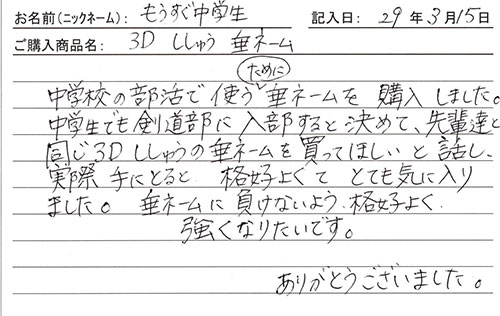 お名前(ニックネーム): もうすぐ中学生 記入日: 29年3月15日
ご購入商品名: 3D ししゅう 垂ネーム
ために
中学校の部活で使う垂ネームを購入しました。
中学生でも剣道部に入部すると決めて、先輩達と
同じ3Dししゅうの垂ネームを買ってほしいと話し、
実際手にとると 格好よくて とても気に入り
ました。 垂ネームに負けないよう、格好よく
強くなりたいです。
ありがとうございました。